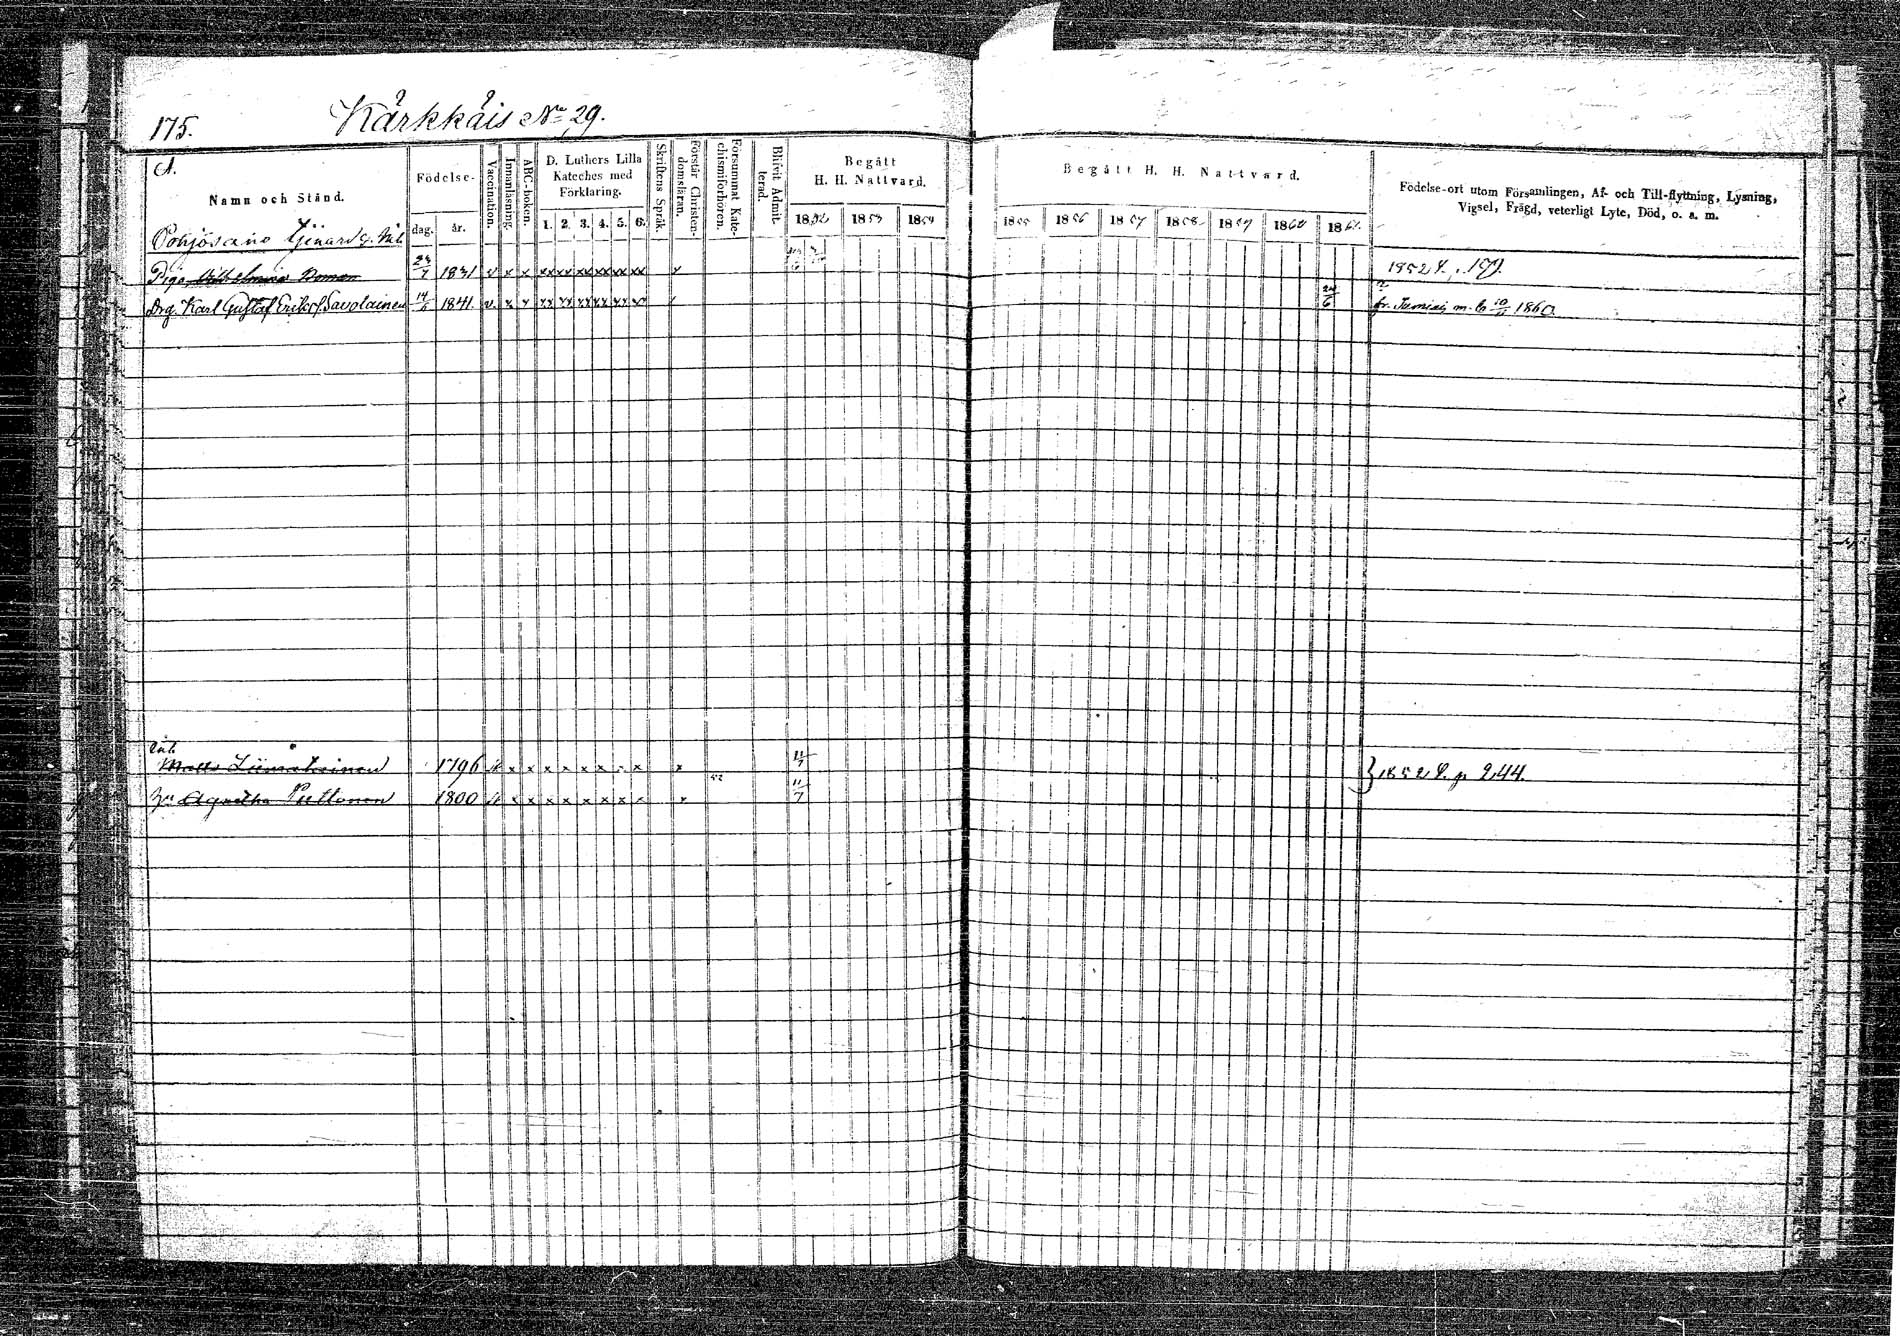 175.
Kärkkäis No 29.
A.
Namn och Stånd.
Födelse-
dag.
år.
Vaccination.
Innanläsning.
ABC-boken.
D. Luthers Lilla
Kateches med
Förklaring.
1. 2. 3. 4. 5. 6.
Skriftens Språk.
Förstår Christen-
domsläran.
Försummat Kate-
chismiförhören.
Blifvit Admit-
terad.
Begått
H. H. Nattvard.
1852 1853 1854
Begått H. H. Nattvard.
1855 1856 1857 1858 1859 1860 1861
Födelse-ort utom Församlingen, Af- och Till-flyttning, Lysning,
Vigsel, Frägd, veterligt Lyte, Död, o. s. m.
Piga Wilhelmina 23/7 1831 v x x xx xx xx xx xx xx x 1852
Drg. Karl Gustaf Eriks. Savolainen 1841 v. x x xx xx xx xx xx xx 24/6 fr. m. b. 1860.
Inh.
Matts Liimatainen 1796 x x x x x x x x 11/7
Hu Agnetha Puttonen 1800 x x x x x x x x x 52 11/7
} 1852 p. 244.